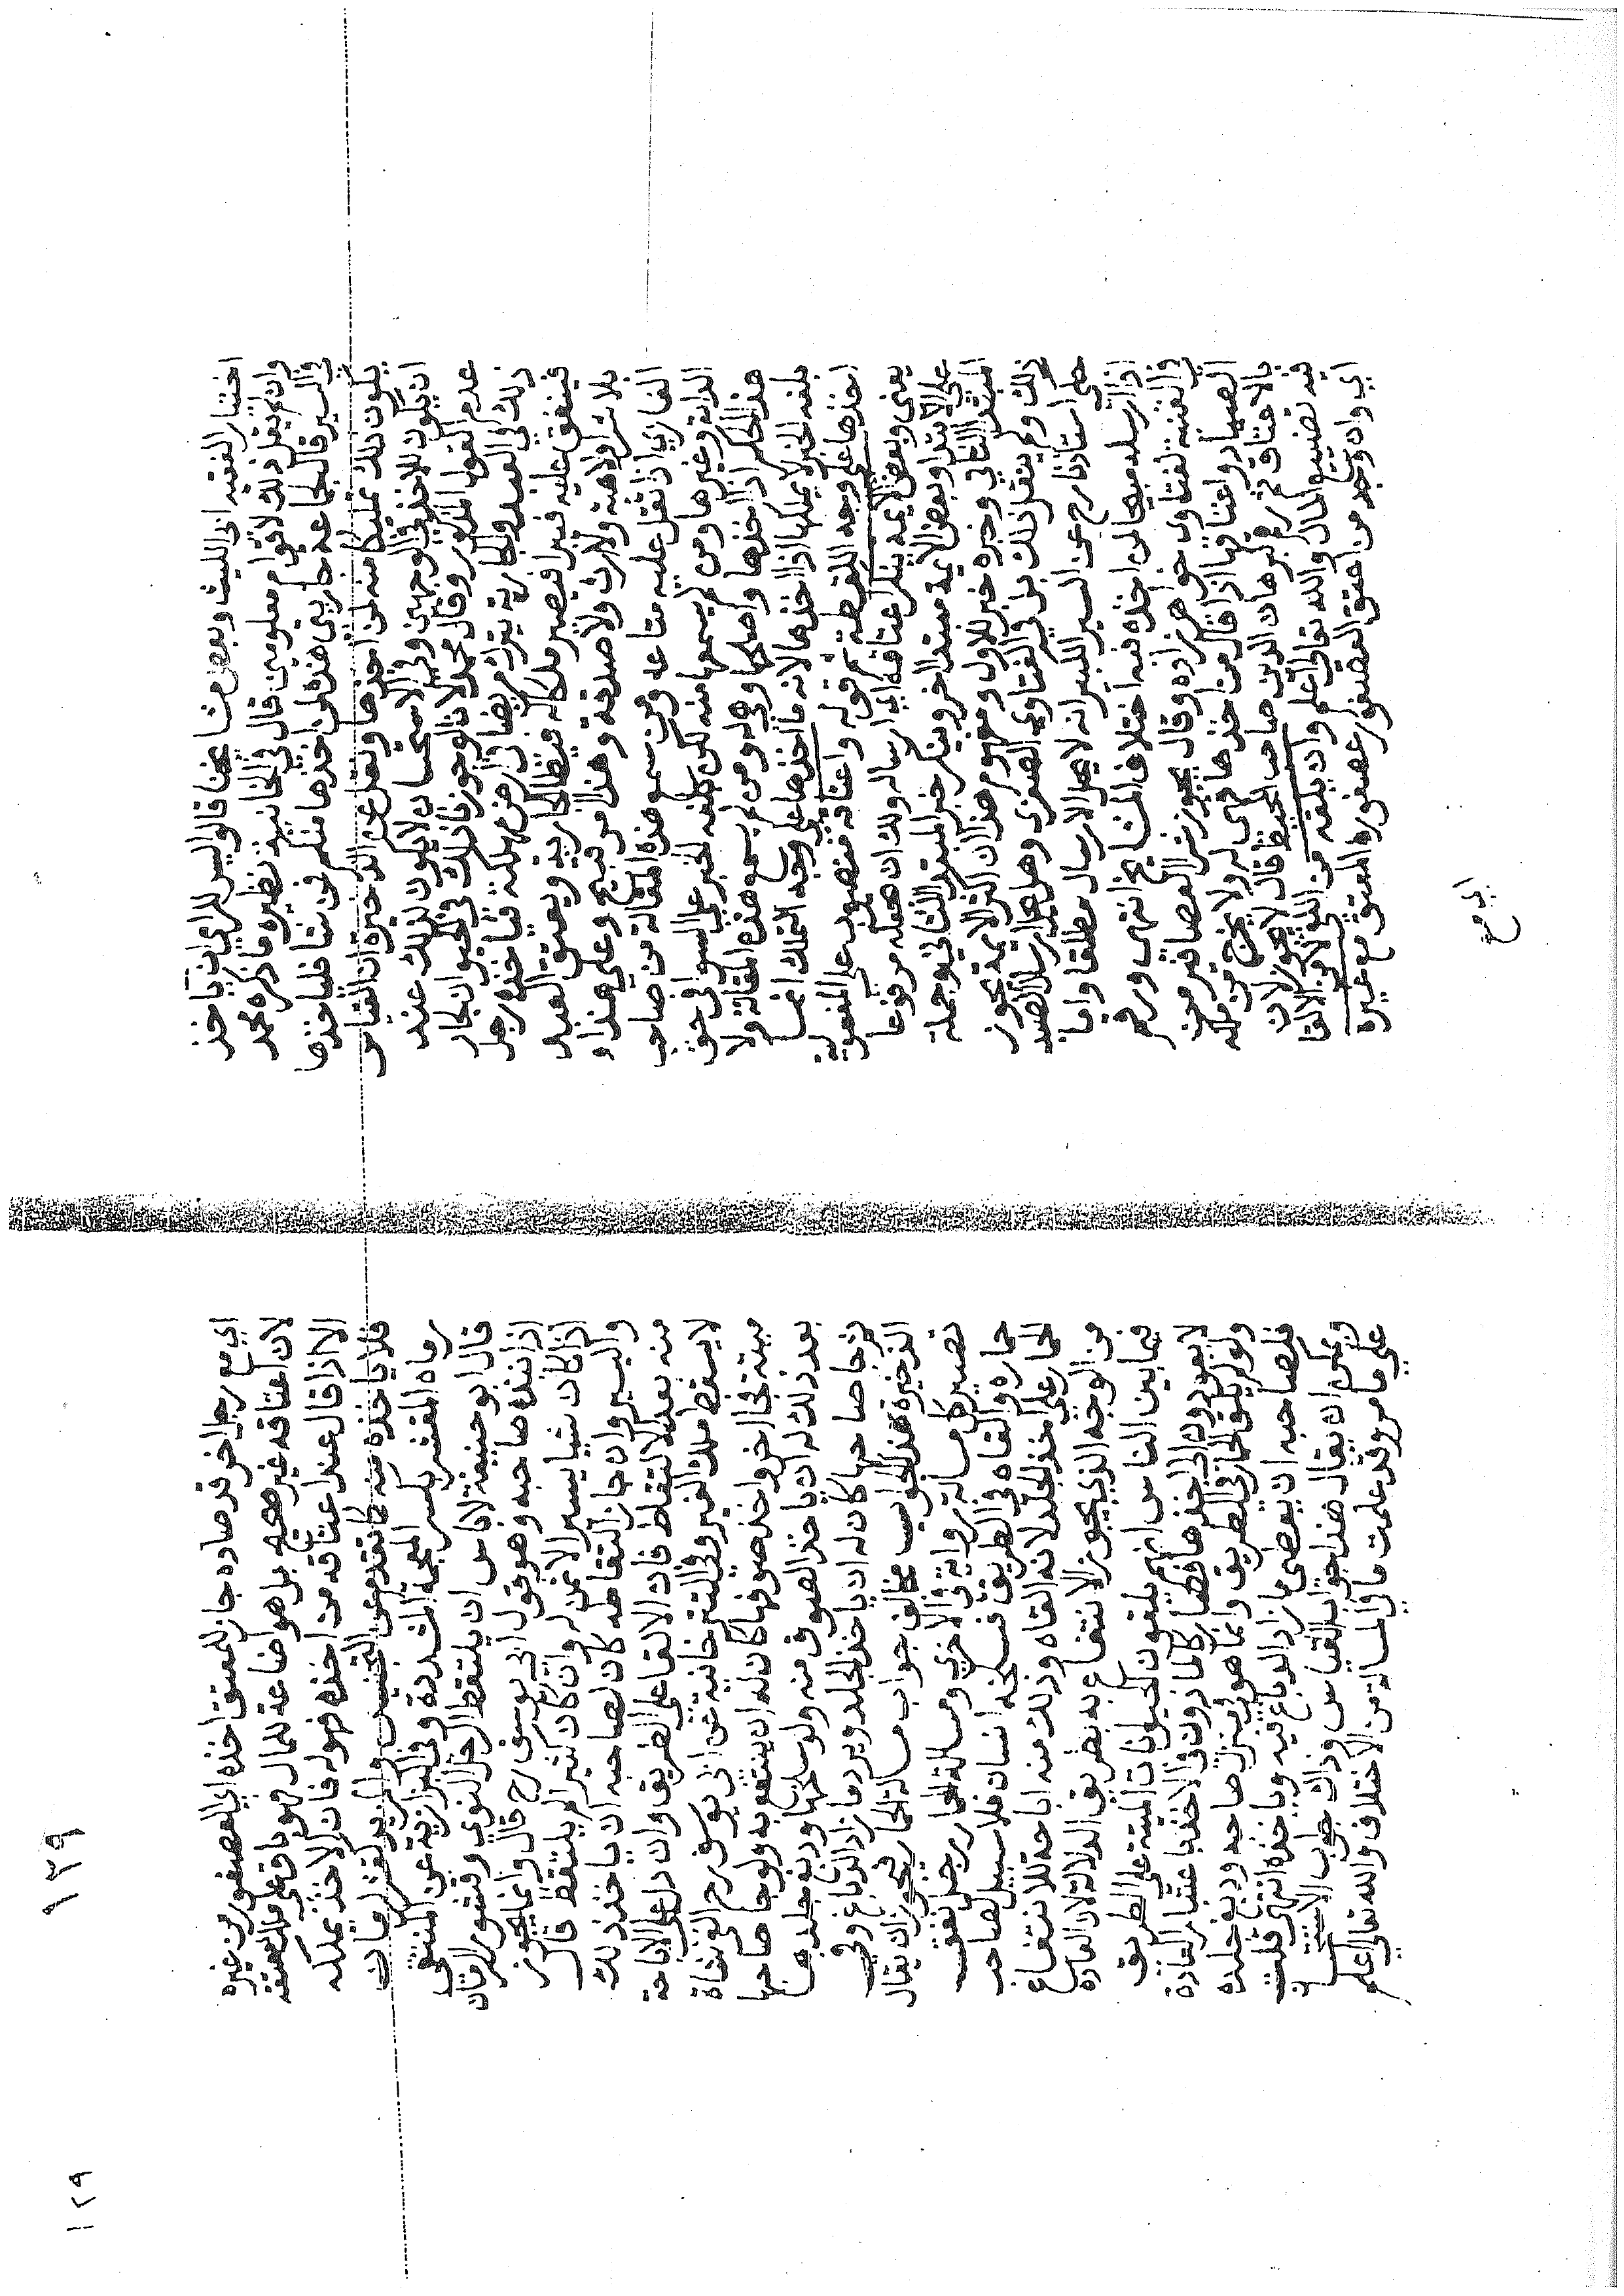 اختار الفقيه ابى الليث وبعض مشايخنا قالوا ليس للراعي ان ياخذ
وان لم يقل ذلك لاقوام معلومين قال في الخانية نظيره ما ذكره محمد
في السير قال لجماعة جاريتي هذه لمن اخذها منكم فمن شا فلياخذها
يكون ذلك تمليكا منه لمن اخذها ونقل عن الذخيرة ان القياس
ان يكون للاخذ في الوجهين وفي الاستحسان لا يكون لذلك عند
عدم القول المذكور وقال محمد لانا لو جوزنا ذلك في الحيوان لجاز
ذلك في العبد والجارية يترك مريضا في ارض مهلكة فياخذه رجل
فينفق عليه فيبرا فيصير ملكا له فيطا الجارية ويعتق العبد
بلا شرا ولا هبة ولا ارث ولا صدقة وهذا امر قبيح وعلي هذا و
الغازي اذا ثقل عليه متاعه ومن سمع هذه المقالة من صاحب
الدابة وغيرها ومن لم يسمعها منه لكن بلغه الخبر علي السوا في حق
هذا الحكم اذا اخذها واصلحها وهي له ومن لم يسمع هذه المقالة ولا
بلغه الخبر لا يملكها اذا اخذها لانه ما اخذها علي وجه التملك انما
اخذها علي وجه اللقطة ثم قوله واعتاقه منصوب علي المفعولية
يعني وبعض الايمة ينكر اعتاقه اي ارساله ولك ان تجعله مرفوعا
علي الابتدا وبعض الايمة مبتدا اخر وينكر خبر المبتدا الثاني وجملة
المبتدا الثاني وخبره خبر للاول ومفهوم هذا ان اكثر الايمة يجوز
ذلك ولم ينقل ذلك بل في الفتاوي الصغري وهل يحل ارسال الصيد
حكي استاذنا رح عن السير الكبير انه لا يحل الارسال مطلقا واما
اذا ارسله مبيحا لمن اخذه فيه اختلاف المشايخ انتهي ورقم
في القنية لفتاوي خواهرزاده وقال يجوز شرا العصافير من
الصياد واعتاقها اذا قال من اخذها فهي له ولا يخرج من ملكه
بالاعتاق ثم رقم لبرهان الدين صاحب المحيط قال لا يجوز لان
فيه تضييع المال والله تعالي اعلم وان يلقه من القي لا من الالقا
اي وان وجد من اعتق العصفور عصفوره المعتق مع غيره
اي مع
اي مع رجل اخر قد صاده جاز للمعتق اخذه اي العصفور من غيره
لان اعتاقه غير صحيح بل هو اضاعة للمال فهو باق علي ملك معتقه
الا اذا قال عند اعتاقه من اخذه فهو له فان الاخذ يملكه
فلا ياخذه منه كما تقدم عن التجنيس والمزيد لقشر رمان
رماه المقشر بكسر المعجمة المشددة وفي البزازية عن المنتقي
قال ابو حنيفة لا باس ان يلتقط الرجل النوي وقشور الرمان
اذا نبذه صاحبه وهو قول ابي يوسف رح قال وانما يجوز
اذا كان شيا يسيرا لا ثمن له وان كان كثيرا لم يلتقط قال
واليسير وان جاز التقاطه كان لصاحبه ان ياخذ ذلك
منه بعد الالتقاط فان الالقا علي الطريق وان دل علي الاباحة
لا يسقط ملك الغير وفي التترخانية عن ابي يوسف رح القي شاة
ميتة فجا اخر واخذ صوفها كان له ان ينتفع به ولو جا صاحبها
بعد ذلك له ان ياخذ الصوف منه ولو سلخها ودبغ جلدها
ثم جا صاحبها كان له ان ياخذ الجلد ويرد ما زاد الدباغ وفي
الذخيرة هذا الجواب مخالف جواب مسالة الحمار فيجوز ان يقال
تصير كل مسالة رواية في الاخري ومسالة الحمار رجل نفق
حماره والقاه في الطريق فسلخه انسان فلا سبيل لصاحب
الحمار علي اخذ الجلد لانه القاه وذلك منه اباحة للانتفاع
من الوجه الذي يجوز الانتفاع به بطريق الدلالة لان العادة
فيما بين الناس انهم يلقون الحيوانات الميتة علي الطريق
لا يعودون الي اخذها فصار كالماذون في الاخذ باعتبار العادة
ولو لم يلق الحمار في الطريق وانما هو في منزل صاحبه ودبغ جلده
فلصاحبه ان يعطي ما زاد الدباغ فيه وياخذه انتهي قلت
ويمكن ان يقال هذا جواب القياس وذاك جواب الاستحسان
علي ما مر وقد علمت ما في المسالة من الاختلاف والله تعالي اعلم
١٣٩
١٢٩